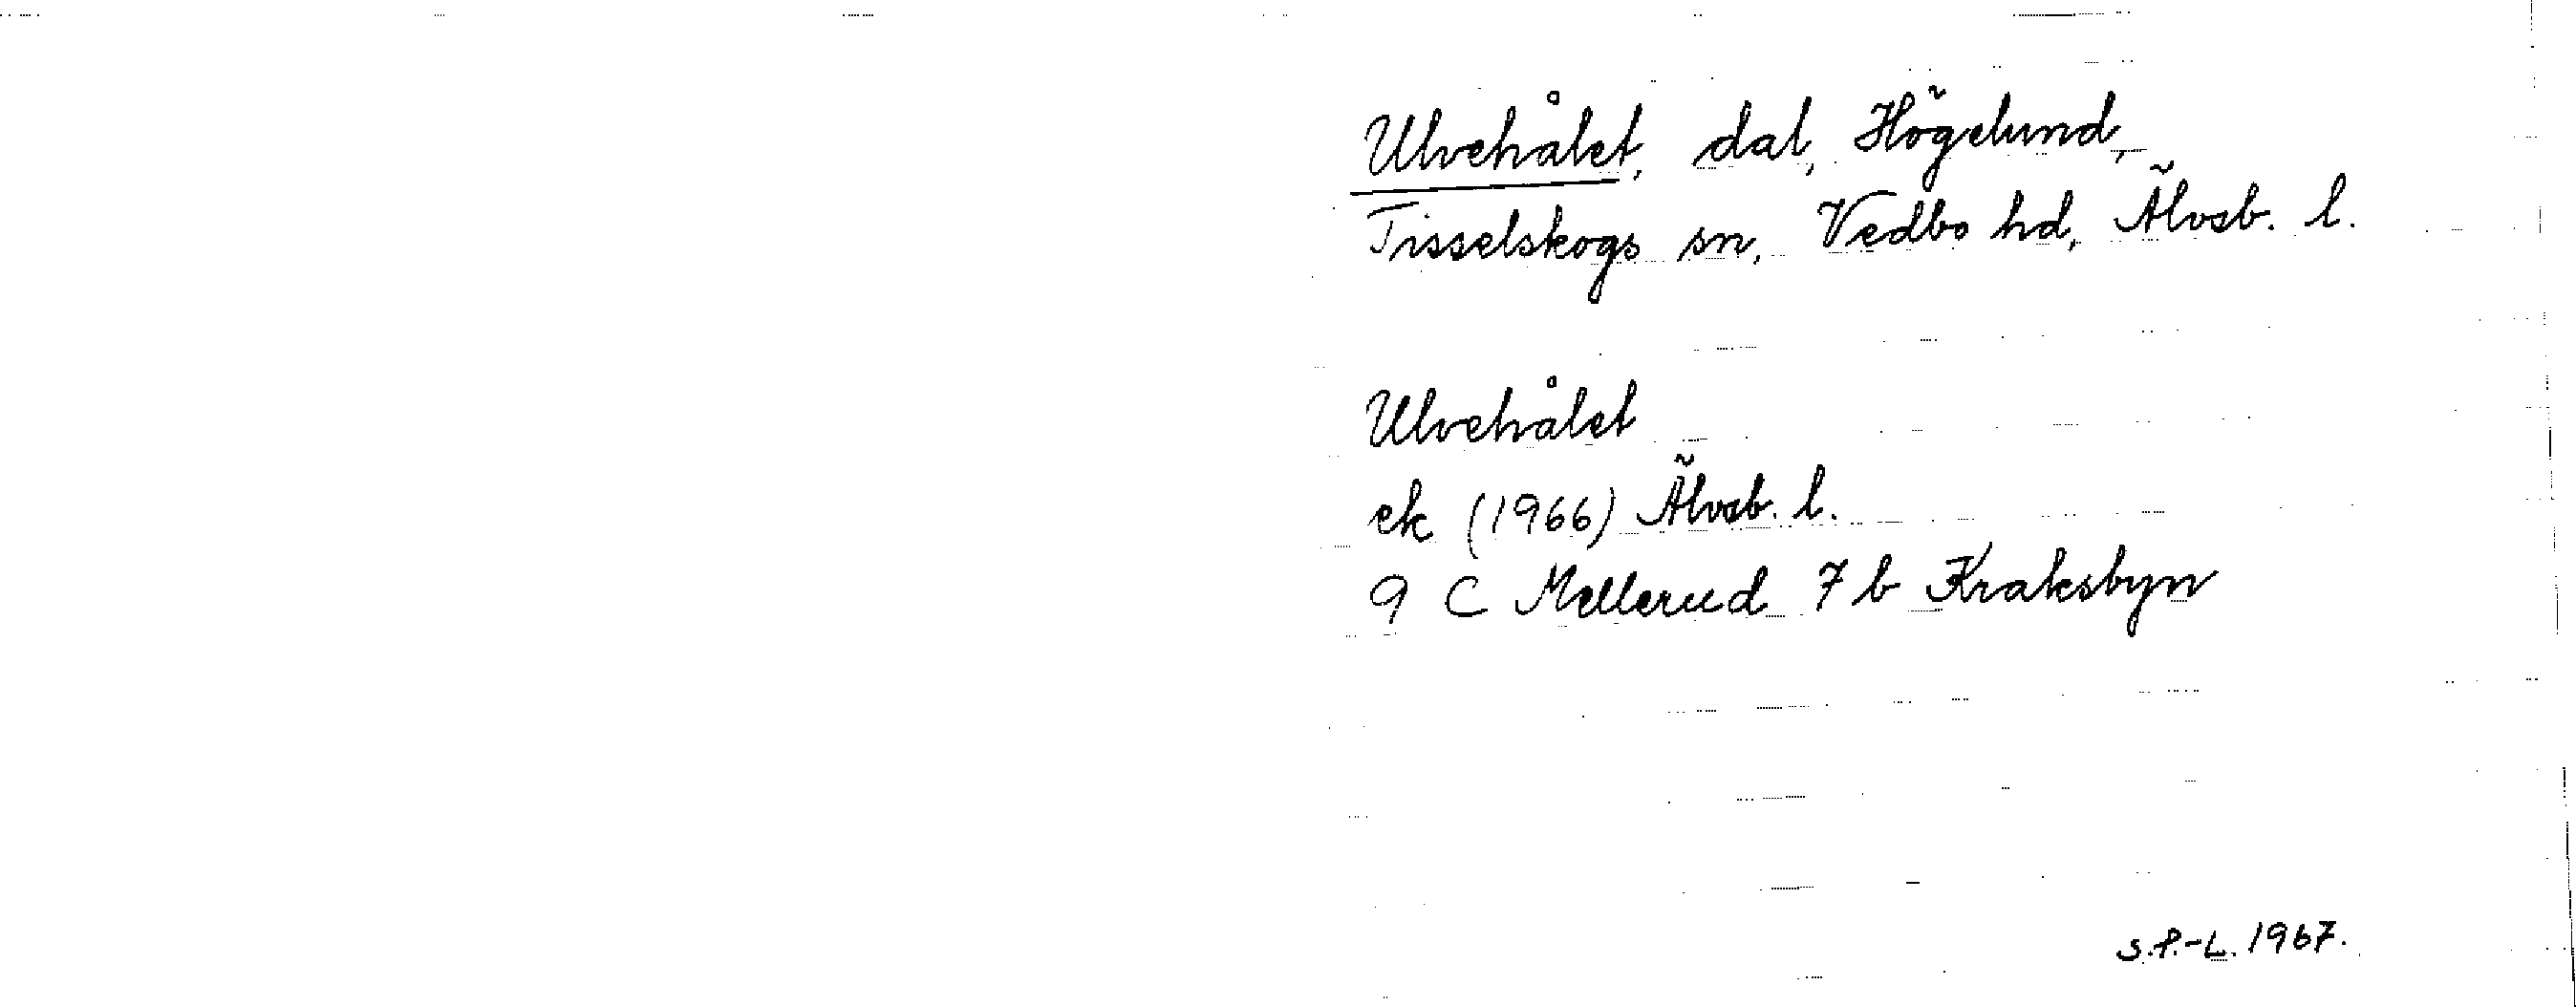 Ulvehålet, dal, Högelund,
Tisselskogs sn, Vedbo hd, Älvsb. l.
Ulvehålet
ek (1966) Älvsb. l.
9 C Mellerud 7 b Kraksbyn
S.P.-L. 1967.